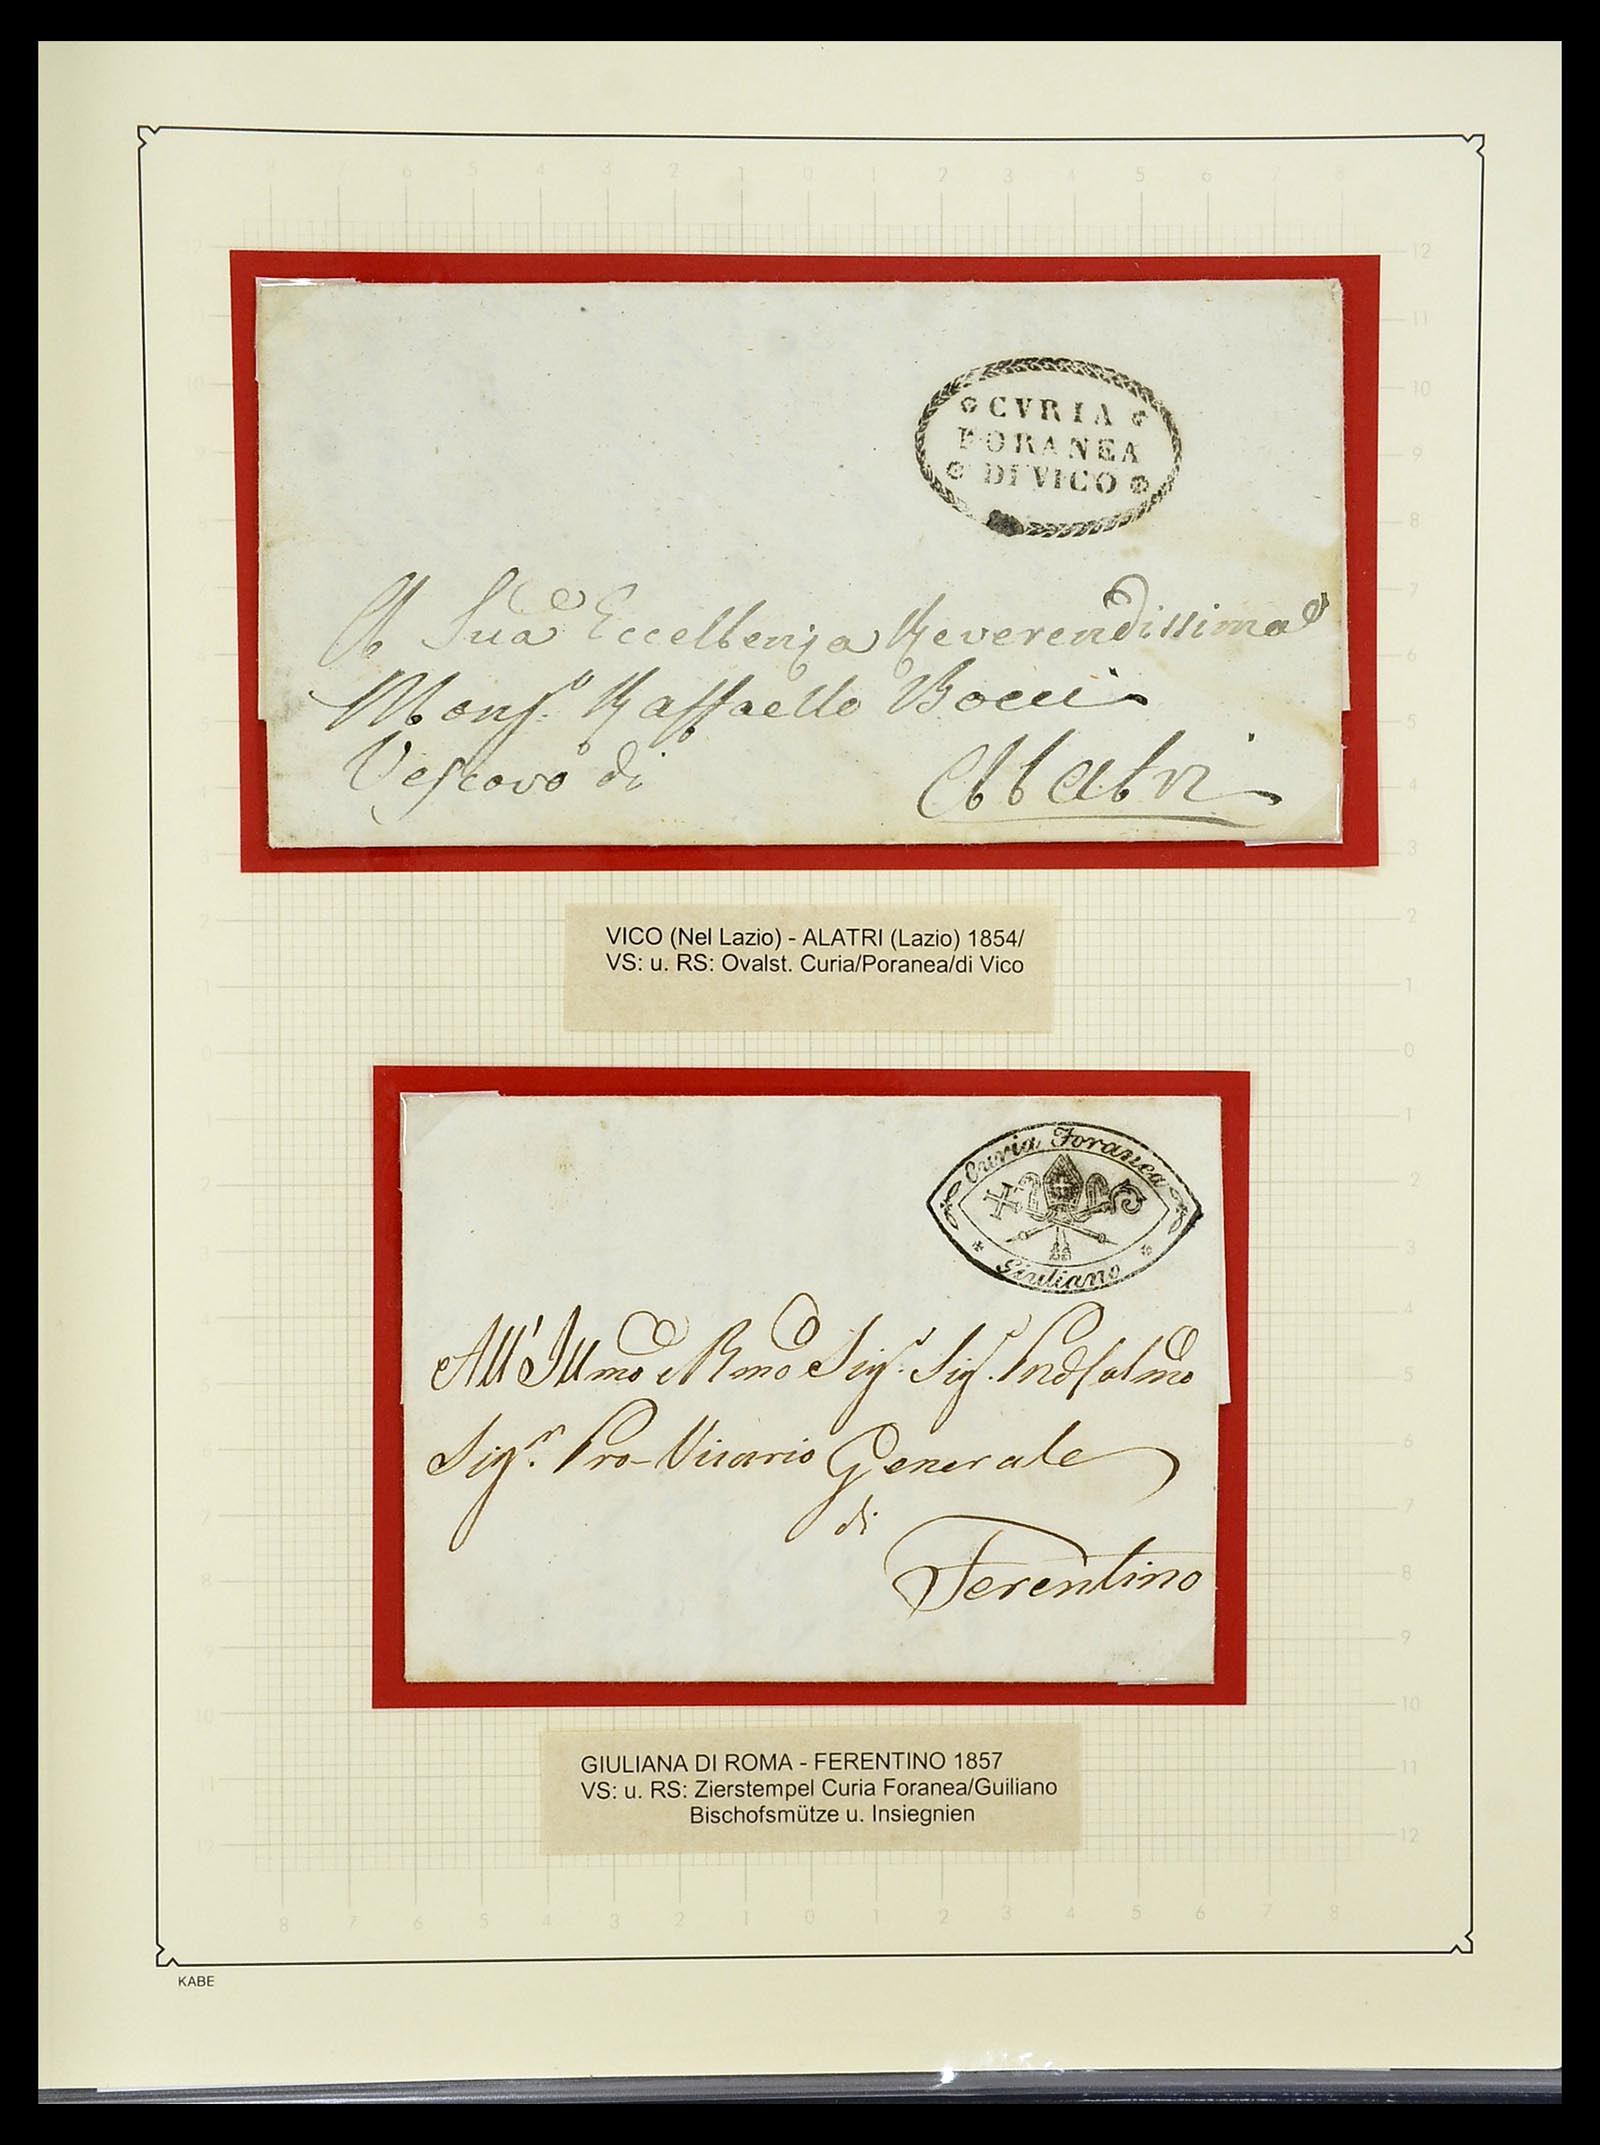 CVRIA
FORANEA
DI VICO
A Sua Eccellenza Reverendissima
Monsr. Raffaello Bocci
Vescovo di Alatri
VICO (Nel Lazio) - ALATRI (Lazio) 1854/
VS: u. RS: Ovalst. Curia/Poranea/di Vico
Curia Foranea
Giuliano
All'Illmo e Rmo Sigr. Sigr. Prdlolmo
Sigr. Pro-Vicario Generale
di
Ferentino
GIULIANA DI ROMA - FERENTINO 1857
VS: u. RS: Zierstempel Curia Foranea/Guiliano
Bischofsmütze u. Insiegnien
KABE